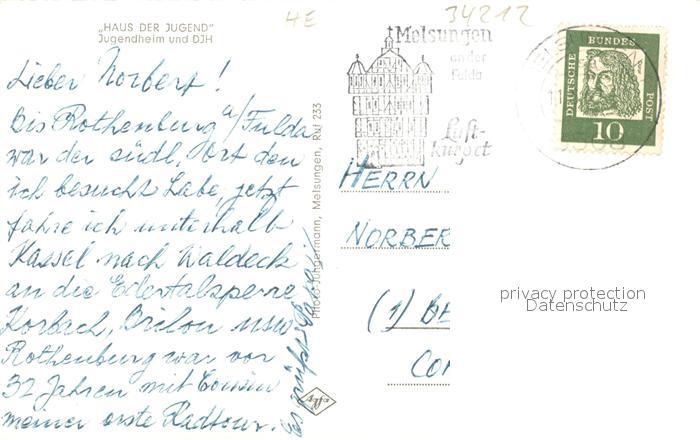 4E
34212
„HAUS DER JUGEND"
Jugendheim und DJH
Melsungen
an der
Fulda
Luft-
kurort
DEUTSCHE BUNDES POST
10
Lieber Norbert!
Bis Rothenburg a/Fulda
war der südl. Ort den
ich besucht habe, jetzt
fahre ich unterhalb
Kassel nach Waldeck
an die Edertalsperre
Korbach, Brilon usw
Rothenburg war vor
32 Jahren mit Cousin
meiner erste Radtour.
Es grüßt
Photo: Jungermann, Melsungen, Ruf 233
HERRN
NORBER
(1) BE
CO
privacy protection
Datenschutz